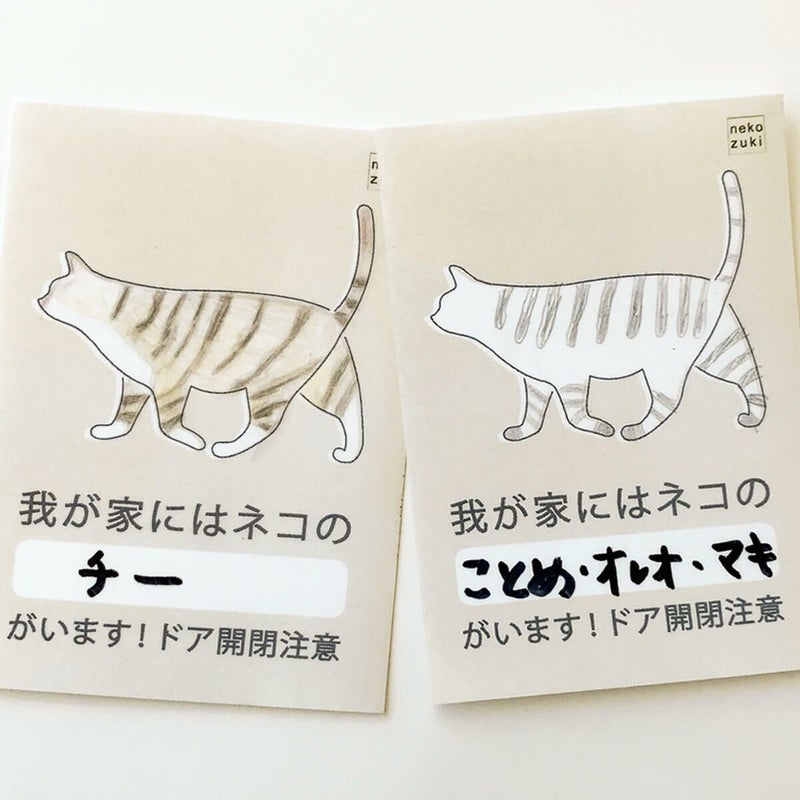 n
z
我が家にはネコの
チー
がいます!ドア開閉注意
neko
zuki
我が家にはネコの
ことめ・オレオ・マキ
がいます!ドア開閉注意